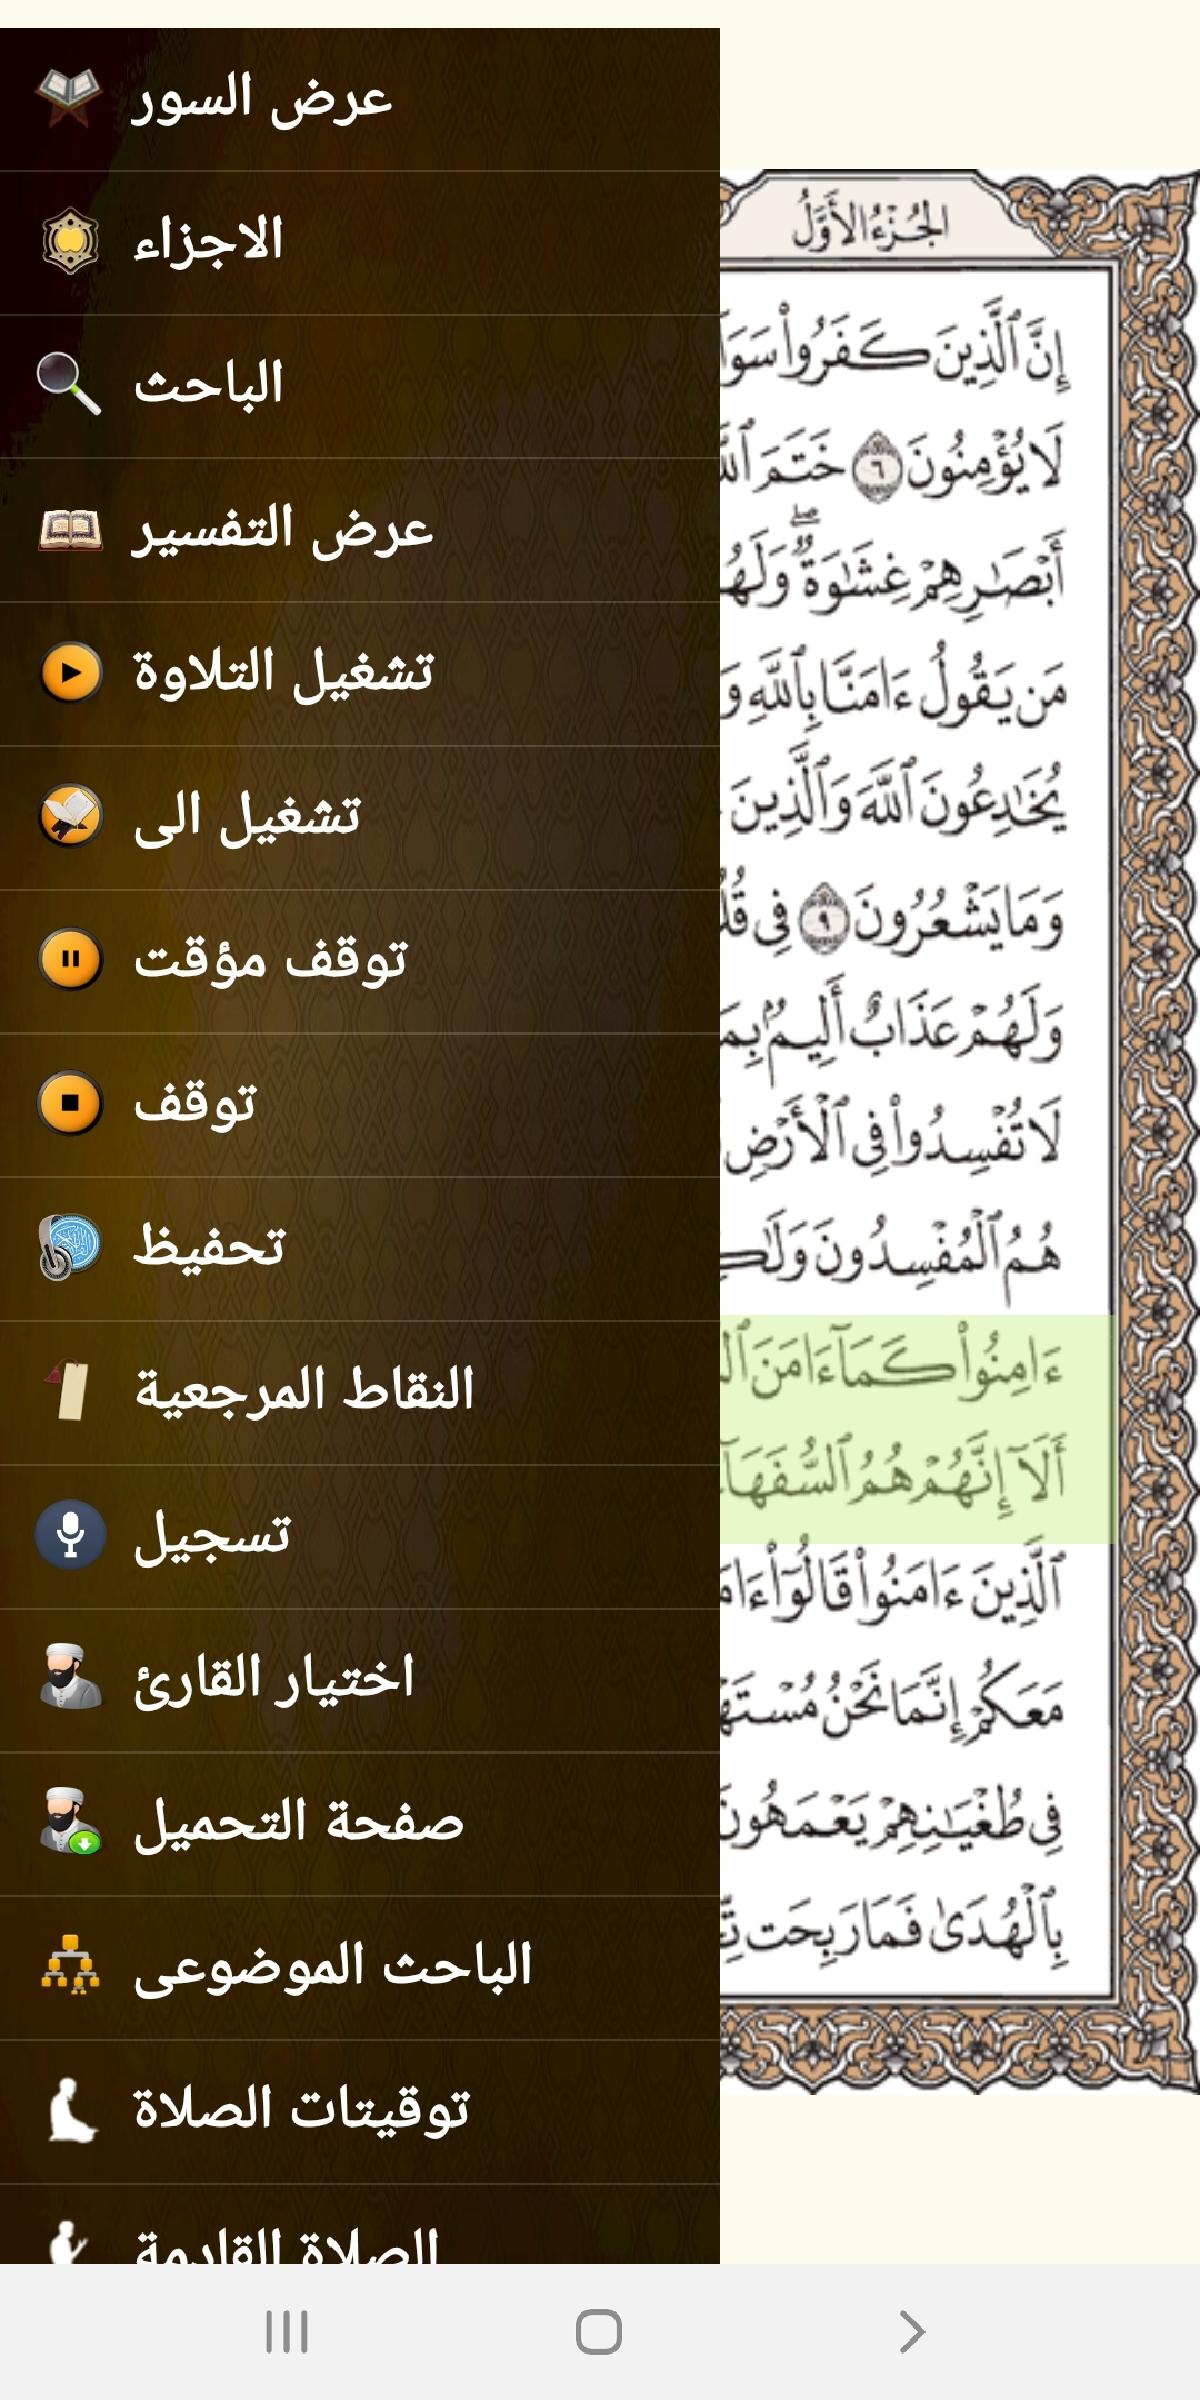 عرض السور
الاجزاء
الباحث
عرض التفسير
تشغيل التلاوة
تشغيل الى
توقف مؤقت
توقف
تحفيظ
النقاط المرجعية
تسجيل
اختيار القارئ
صفحة التحميل
الباحث الموضوعى
توقيتات الصلاة
الصلاة القادمة
الجُزْءُ الأَوَّلُ
إِنَّ ٱلَّذِينَ كَفَرُوا۟
لَا يُؤْمِنُونَ ٦ خَتَمَ
أَبْصَٰرِهِمْ غِشَٰوَةٌۖ
مَن يَقُولُ ءَامَنَّا بِٱللَّهِ و
يُخَٰدِعُونَ ٱللَّهَ وَٱلَّذِينَ
وَمَا يَشْعُرُونَ ٩ فِى
وَلَهُمْ عَذَابٌ أَلِيمٌۢ
لَا تُفْسِدُوا۟ فِى ٱلْأَرْضِ
هُمُ ٱلْمُفْسِدُونَ
ءَامِنُوا۟ كَمَآ ءَامَنَ
أَلَآ إِنَّهُمْ هُمُ
ٱلَّذِينَ ءَامَنُوا۟ قَالُوٓا۟
مَعَكُمْ إِنَّمَا نَحْنُ
فِى طُغْيَٰنِهِمْ يَعْمَهُونَ
بِٱلْهُدَىٰ فَمَا رَبِحَت